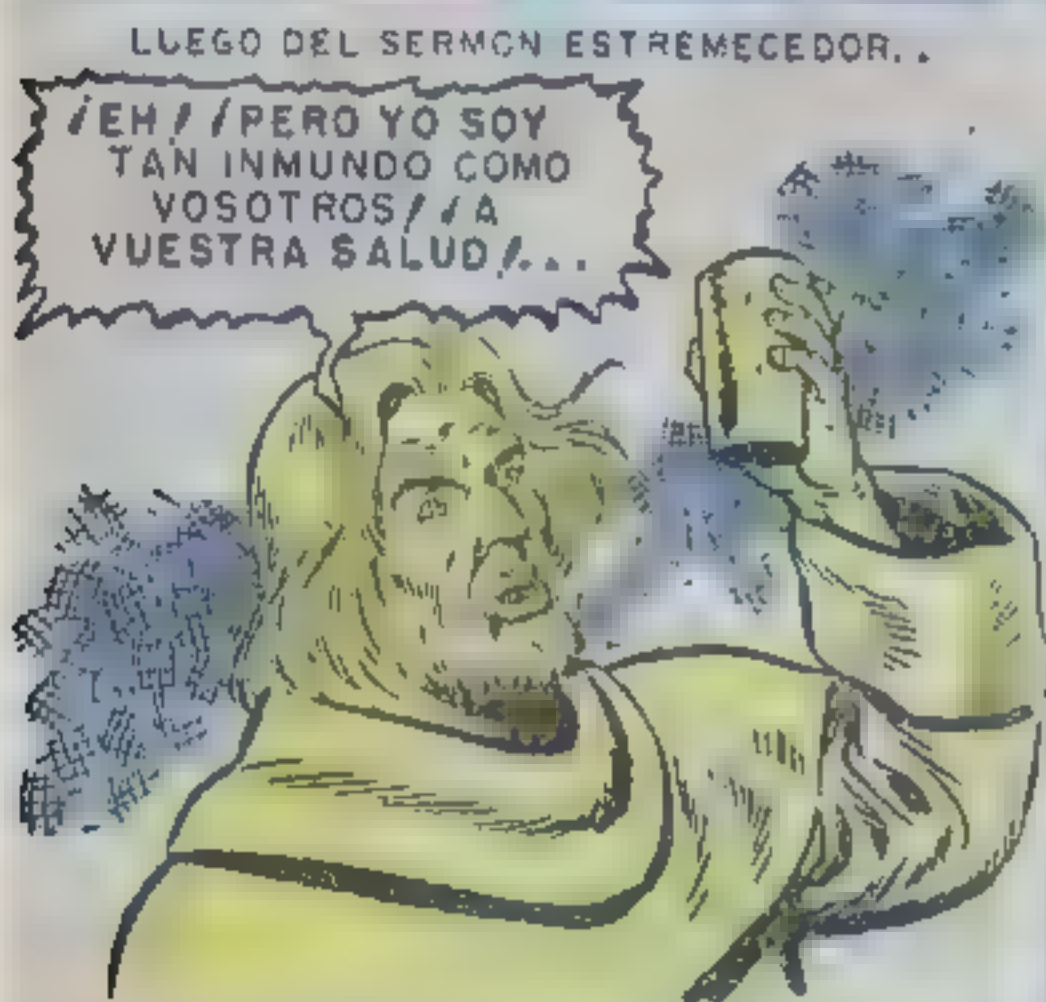 LUEGO DEL SERMON ESTREMECEDOR..
¡EH! ¡PERO YO SOY
TAN INMUNDO COMO
VOSOTROS! ¡A
VUESTRA SALUD!...